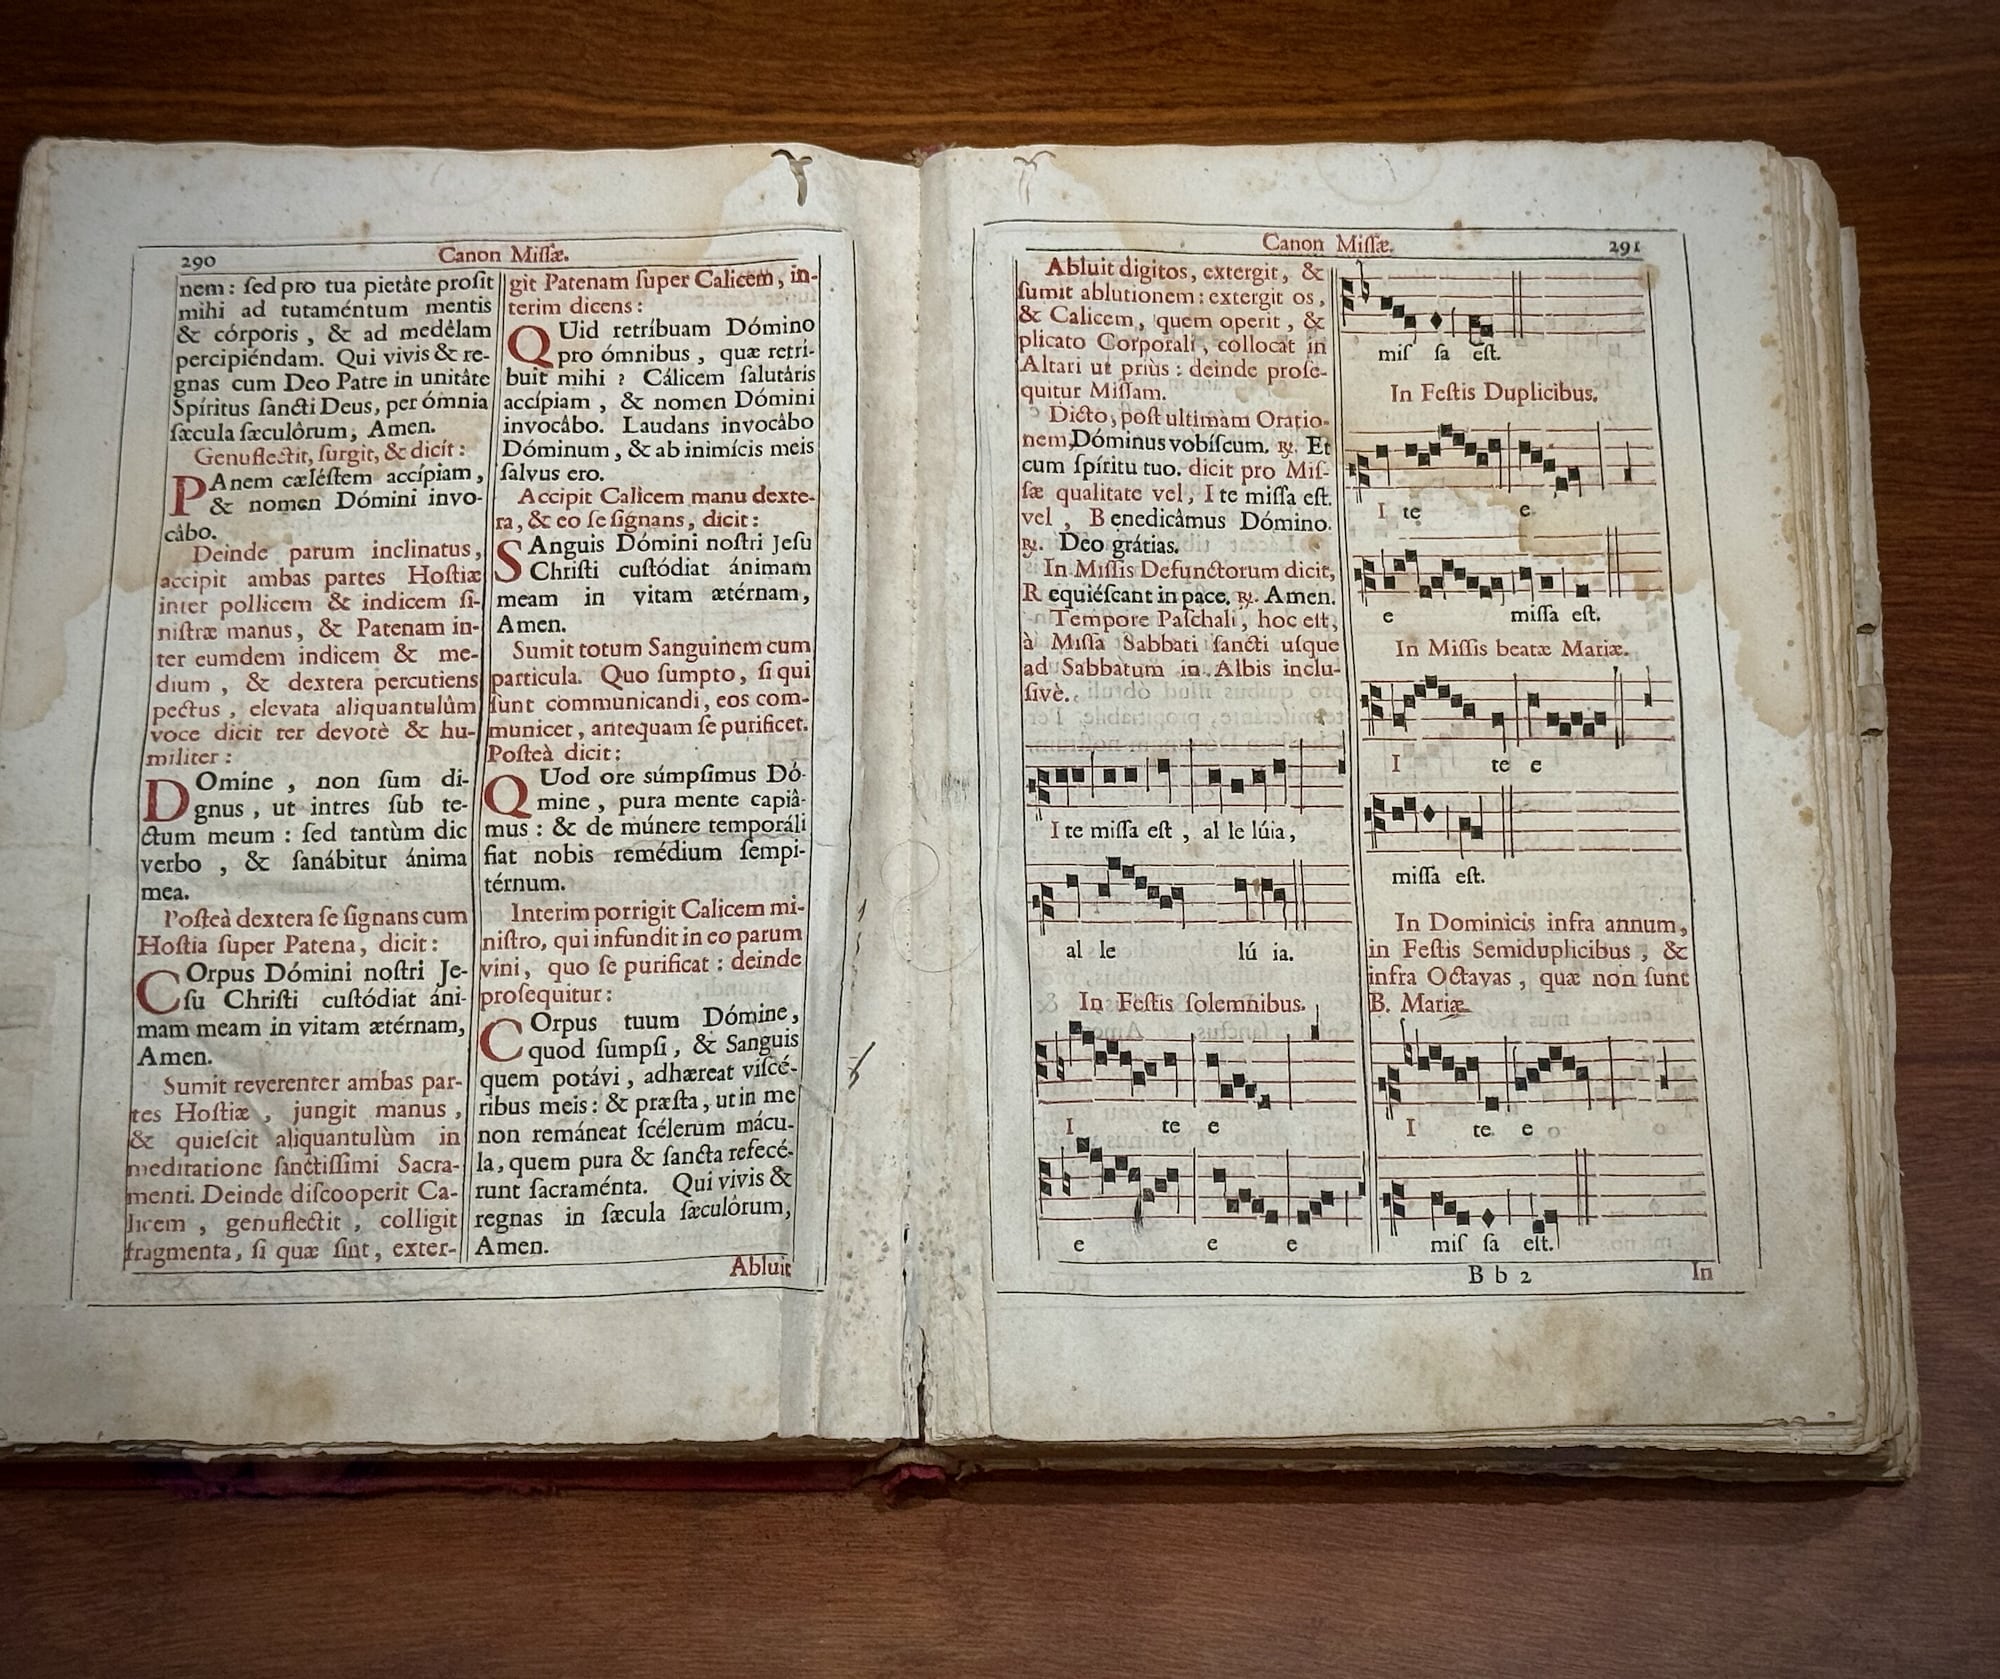 290
Canon Miſſæ.
nem: ſed pro tua pietâte proſit
mihi ad tutaméntum mentis
& córporis , & ad medêlam
percipiéndam. Qui vivis & re-
gnas cum Deo Patre in unitâte
Spíritus ſancti Deus, per ómnia
ſæcula ſæculôrum, Amen.
Genuflectit, ſurgit, & dicit :
PAnem cæléſtem accípiam,
& nomen Dómini invo-
câbo.
Deinde parum inclinatus,
accipit ambas partes Hoſtiæ
inter pollicem & indicem ſi-
niſtræ manus, & Patenam in-
ter eumdem indicem & me-
dium , & dextera percutiens
pectus , elevata aliquantulûm
voce dicit ter devotè & hu-
militer :
DOmine , non ſum di-
gnus , ut intres ſub te-
ctum meum : ſed tantùm dic
verbo , & ſanábitur ánima
mea.
Poſteà dextera ſe ſignans cum
Hoſtia ſuper Patena, dicit :
COrpus Dómini noſtri Je-
ſu Chriſti cuſtódiat áni-
mam meam in vitam ætérnam,
Amen.
Sumit reverenter ambas par-
tes Hoſtiæ , jungit manus ,
& quieſcit aliquantulùm in
meditatione ſanctiſſimi Sacra-
menti. Deinde diſcooperit Ca-
licem , genuflectit , colligit
fragmenta, ſi quæ ſint, exter-
git Patenam ſuper Calicem, in-
terim dicens :
QUid retríbuam Dómino
pro ómnibus , quæ retrí-
buit mihi ? Cálicem ſalutáris
accípiam , & nomen Dómini
invocâbo. Laudans invocâbo
Dóminum, & ab inimícis meis
ſalvus ero.
Accipit Calicem manu dexte-
ra, & eo ſe ſignans, dicit :
SAnguis Dómini noſtri Jeſu
Chriſti cuſtódiat ánimam
meam in vitam ætérnam,
Amen.
Sumit totum Sanguinem cum
particula. Quo ſumpto, ſi qui
ſunt communicandi, eos com-
municet, antequam ſe purificet.
Poſteà dicit :
QUod ore súmpſimus Dó-
mine , pura mente capiâ-
mus : & de múnere temporáli
fiat nobis remédium ſempi-
térnum.
Interim porrigit Calicem mi-
niſtro, qui infundit in eo parum
vini, quo ſe purificat : deinde
proſequitur :
COrpus tuum Dómine,
quod ſumpſi, & Sanguis
quem potávi , adhæreat viſcé-
ribus meis : & præſta, ut in me
non remáneat ſcélerum mácu-
la, quem pura & ſancta refecé-
runt ſacraménta. Qui vivis &
regnas in ſæcula ſæculôrum,
Amen.
Abluit
Canon Miſſæ.
291
Abluit digitos, extergit, &
ſumit ablutionem : extergit os,
& Calicem, quem operit , &
plicato Corporali , collocat in
Altari ut priùs : deinde proſe-
quitur Miſſam.
Dicto, poſt ultimàm Oratio-
nem, Dóminus vobíſcum. ℟. Et
cum ſpíritu tuo. dicit pro Miſ-
ſæ qualitate vel, I te miſſa eſt.
vel , B enedicâmus Dómino.
℟. Deo grátias.
In Miſſis Defunctorum dicit,
R equiéſcant in pace. ℟. Amen.
Tempore Paſchali, hoc eſt,
à Miſſa Sabbati ſancti uſque
ad Sabbatum in Albis inclu-
ſivè.
I te miſſa eſt , al le lúia,
al le lú ia.
In Feſtis ſolemnibus.
I te e
e e e
miſ ſa eſt.
In Feſtis Duplicibus.
I te e
e miſſa eſt.
In Miſſis beatæ Mariæ.
I te e
miſſa eſt.
In Dominicis infra annum,
in Feſtis Semiduplicibus , &
infra Octavas , quæ non ſunt
B. Mariæ
I te e
miſ ſa eſt.
B b 2
In